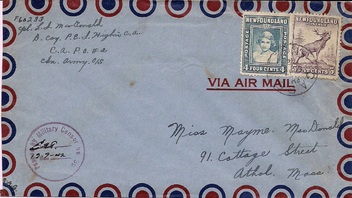 F60233
Cpl. L.S. MacDonald
B. Coy, P.E.I. Highrs C.A.
C.A. P.O. #2
Cdn. Army, O/S
NEWFOUNDLAND
POSTAGE
POSTAGE
4 FOUR CENTS 4
NEWFOUNDLAND
VIA AIR MAIL
Miss Mayme MacDonald
91 Cottage Street
Athol, Mass.
Military Censor
27-7-42